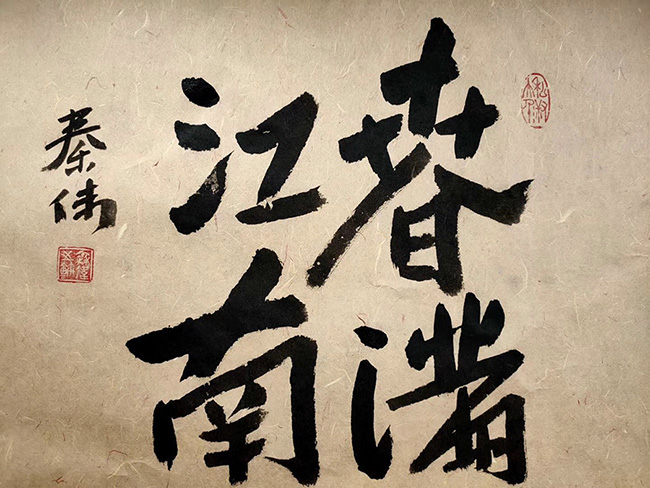 春滿
江南
秦伟